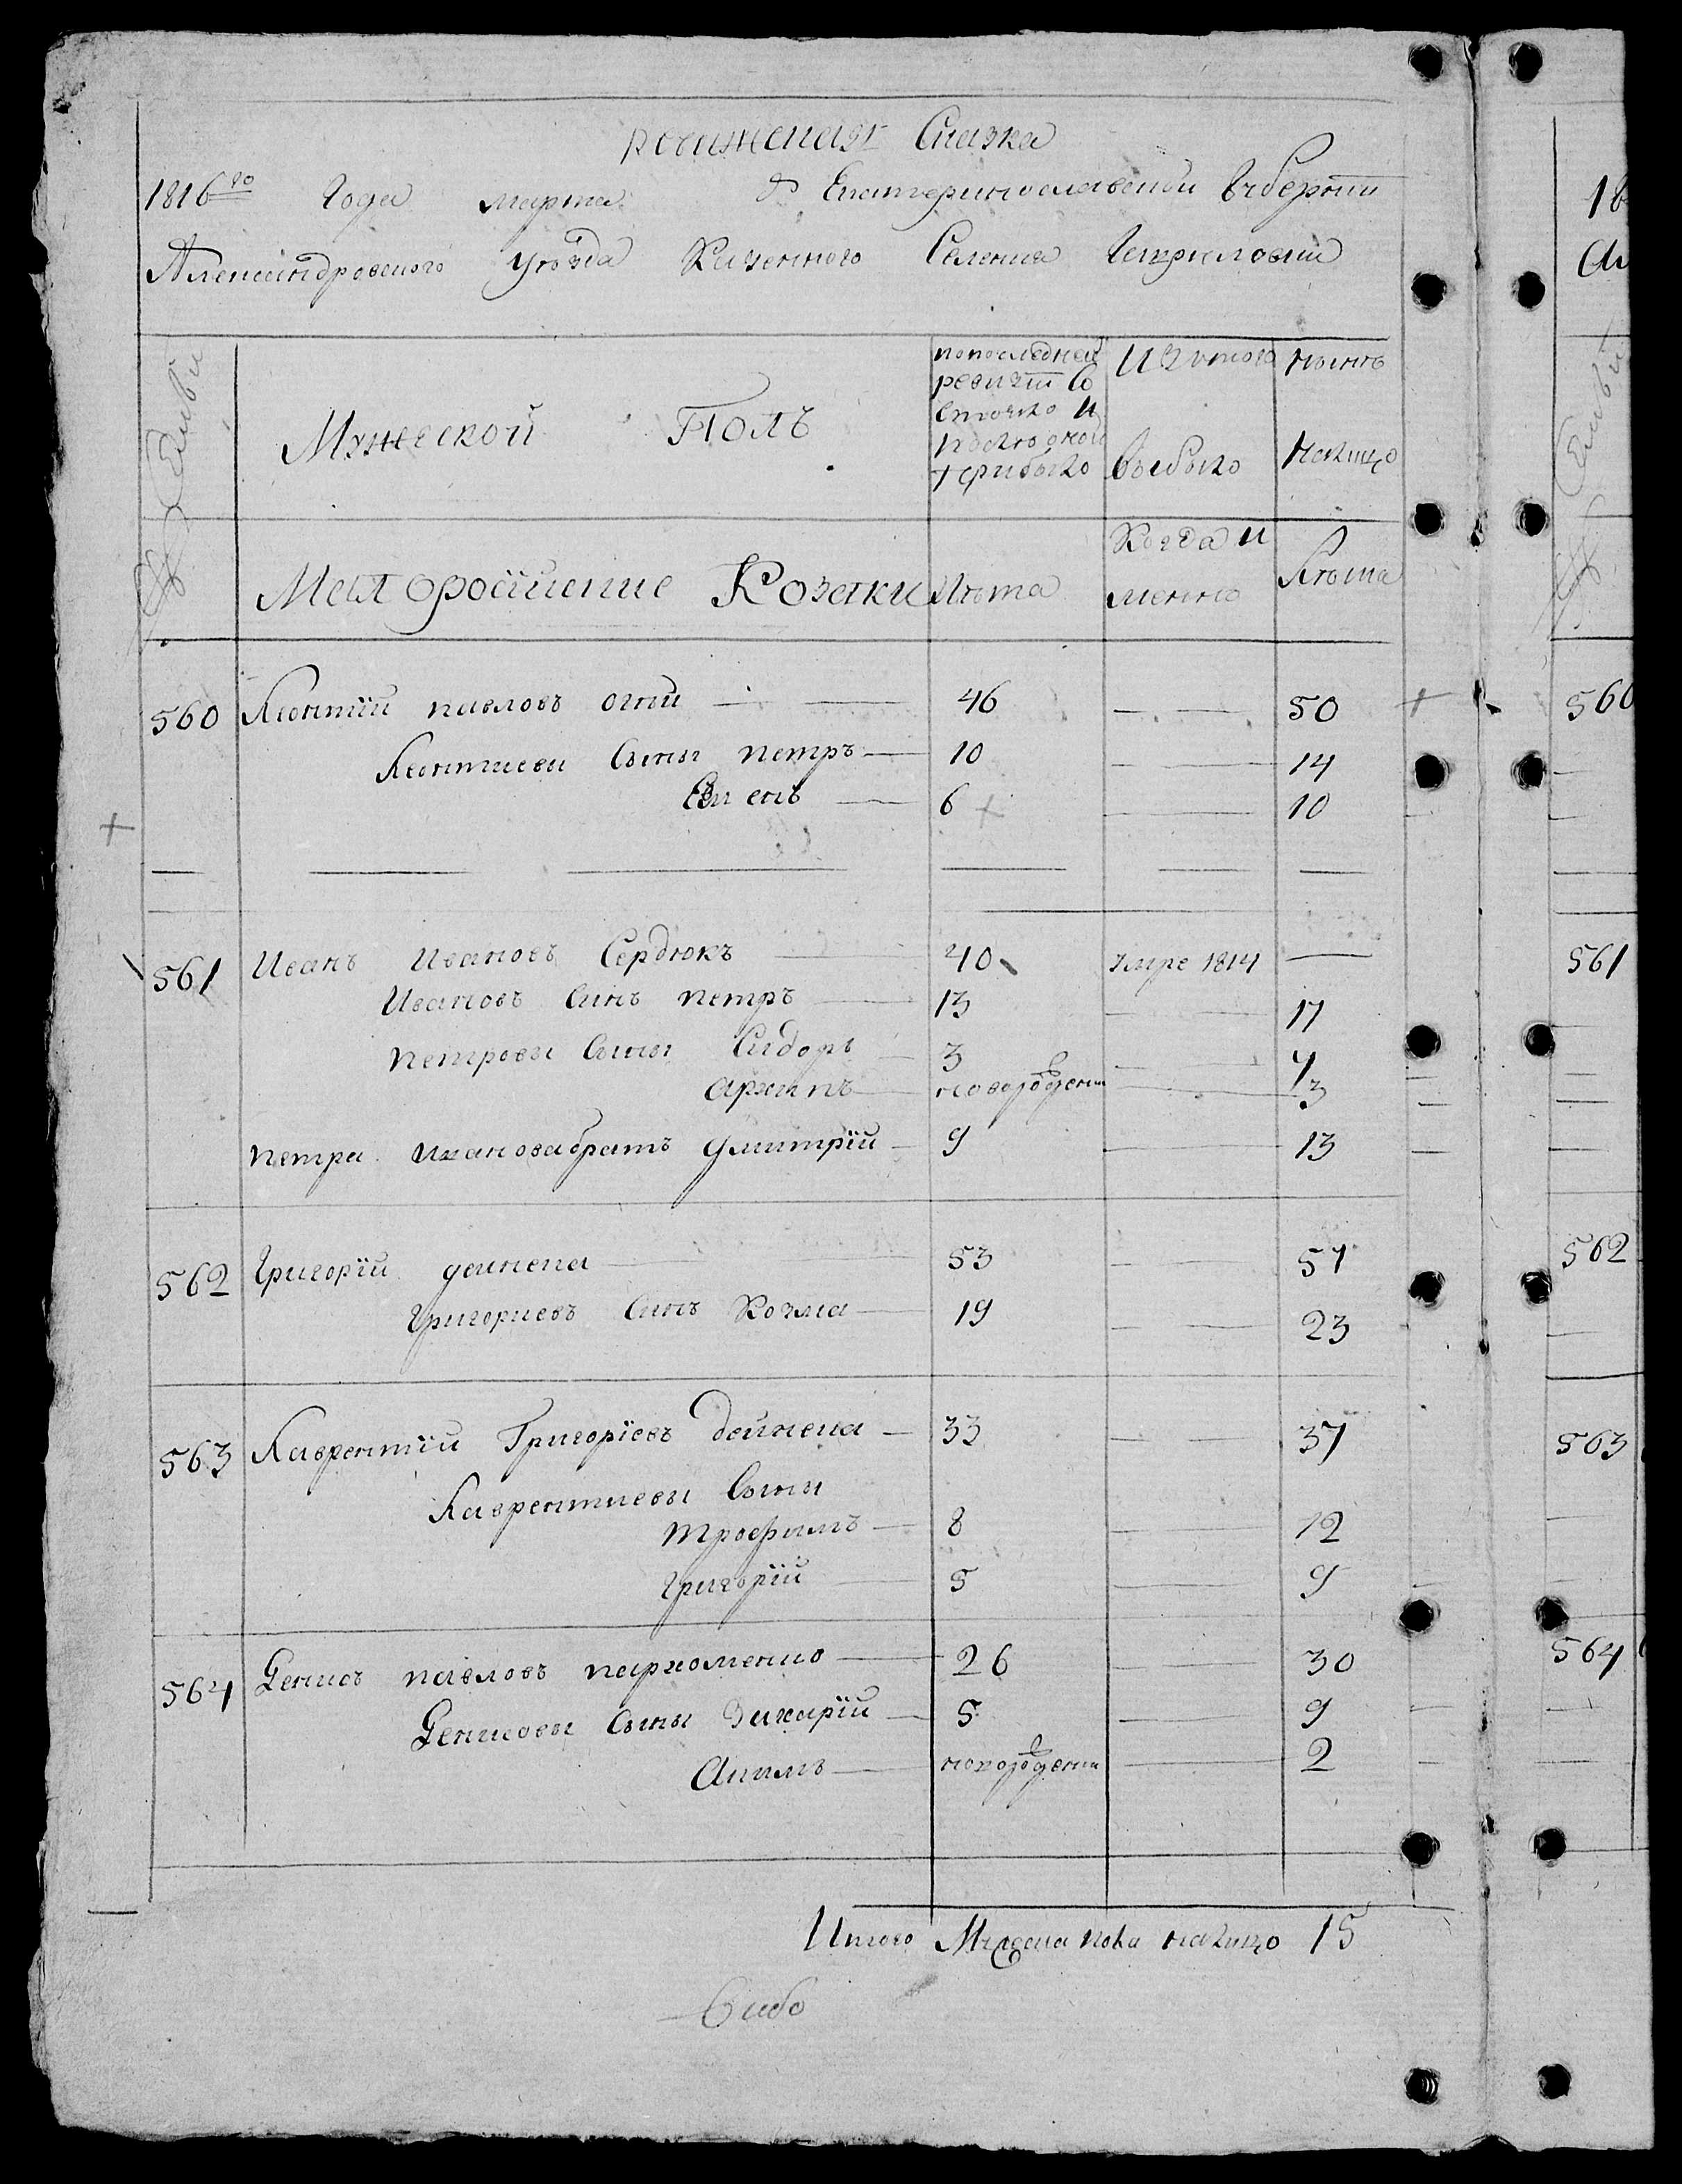 Ревижская Сказка
1816го Года марта Екатеринославской Губернии
Александровского уезда Казенного Селения
Мужеской Полъ
по последней ревизии состояло и после оной прибыло
Изътого выбыло
Нынѣ налицо
Семьи
Малоросийские Козаки
Лѣта
Когда и менно
Лѣта
560 Леонтий павловъ огній 46 50
Леонтиеви Сыны петръ 10 14
Семенъ 6 10
561 Иванъ Ивановъ Сердюкъ 40 умре 1814
Ивановъ Синъ петръ 13 17
петрови Сыны Сидоръ 3 7
Архипъ новорожденъ 3
петра Иванова братъ дмитрій 9 13
562 Григорій дейнека 53 57
Григориевъ Синъ Козма 19 23
563 Лаврентій Григоріевъ дейнека 33 37
Лаврентиевы Сыны
трофимъ 8 12
григорій 5 9
564 Денисъ павловъ пархоменко 26 30
Денисовы Сыны Захарій 5 9
Акимъ новорожденъ 2
Итого Мужеска пола налицо 15
560
561
562
563
564